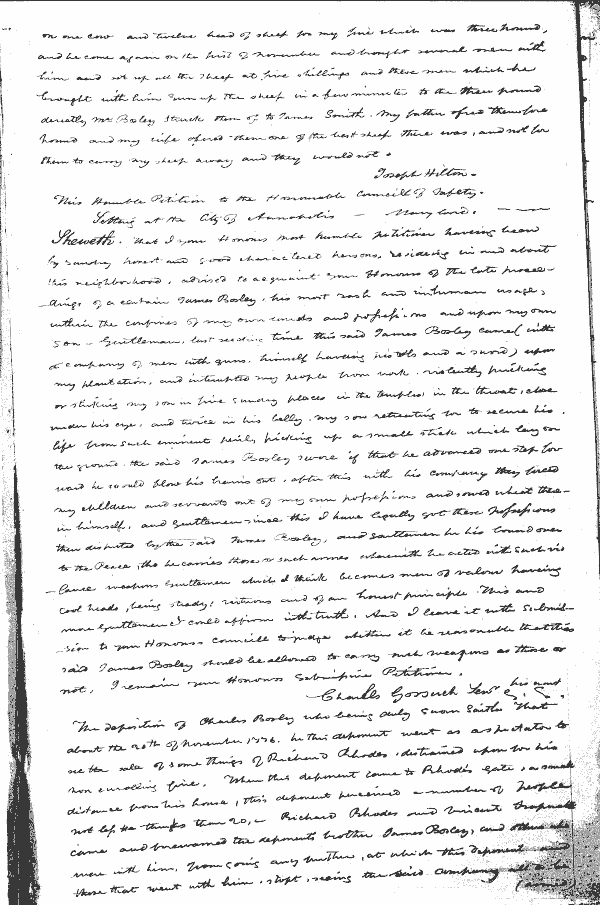 on one cow and twelve head of sheep for my fine which was three pound,
and he come again on the first of November and brought several men with
him and set up all the sheep at five shillings and these men which he
brought with him run up the sheep in a few minutes to the three pound
directly Mr Bosley struck them of to James Smith. My father ofred them fore
pound and my wife ofered them one of the best sheep there was, and not for
them to carry my sheep away and they would not.
Joseph Hilton.
This Humble Petition to the Honourable Councill of Safety.
Setting at the City of Annapolis — Maryland.
Sheweth. That I your Honours most humble petitioner having been
by sundry honest and good characteret persons, residing in and about
this neighborhood, advised to acquaint your Honours of the late procee-
dings of a certain James Bosley, his most rash and inhuman usage,
within the confines of my own lands and possessions and upon my own
son - Gentleman, last seeding time this said James Bosley came (with
a company of men with guns, himself having pistols and a sword) upon
my plantation, and interupted my people from work. violently pricking
or striking my son in five sundry places in the temples in the throat, close
under his eye, and twice in his belly. my son retreating for to secure his
life from such eminent peril, picking up a small stick which lay on
the ground. the said James Bosley swore if that he advanced one step for
ward he would blow his brains out, after this with his company they forced
my children and servants out of my own possessions and sowed wheat there-
in himself, and Gentlemen since this I have legally got these possessions
then disputed by the said James Bosley, and Gentlemen he his bound over
to the Peace, tho he carries those or such armes wherewith he acted with such vio
lance weapons Gentlemen which I think becomes men of valour having
cool heads, being steady, virtious and of an honest principle. This and
more Gentlemen I could affirm with truth. And I leave it with Submis-
sion to your Honours councill to judge whether it be reasonable that this
said James Bosley should be allowed to carry such weapons as those or
not, I remain your Honours Petitioner.
Charles Gorsuch Senr his mark
The deposition of Charles Bosley who being duly sworn saith That
about the 20th of November 1776. he this deponent went as a spectator to
see the sale of some things of Richard Rhodes, distrained upon for his
non enrolling fine. When this deponent came to Rhodes gate, a small
distance from his house, this deponent perceived a number of people
not less he thinks than 20, Richard Rhodes and Vincent
came and forewarned the deponents brother James Bosley, and others who
were with him, from going any further, at which this deponent and
those that went with him, stopt, seeing the said company all to be
(armed)